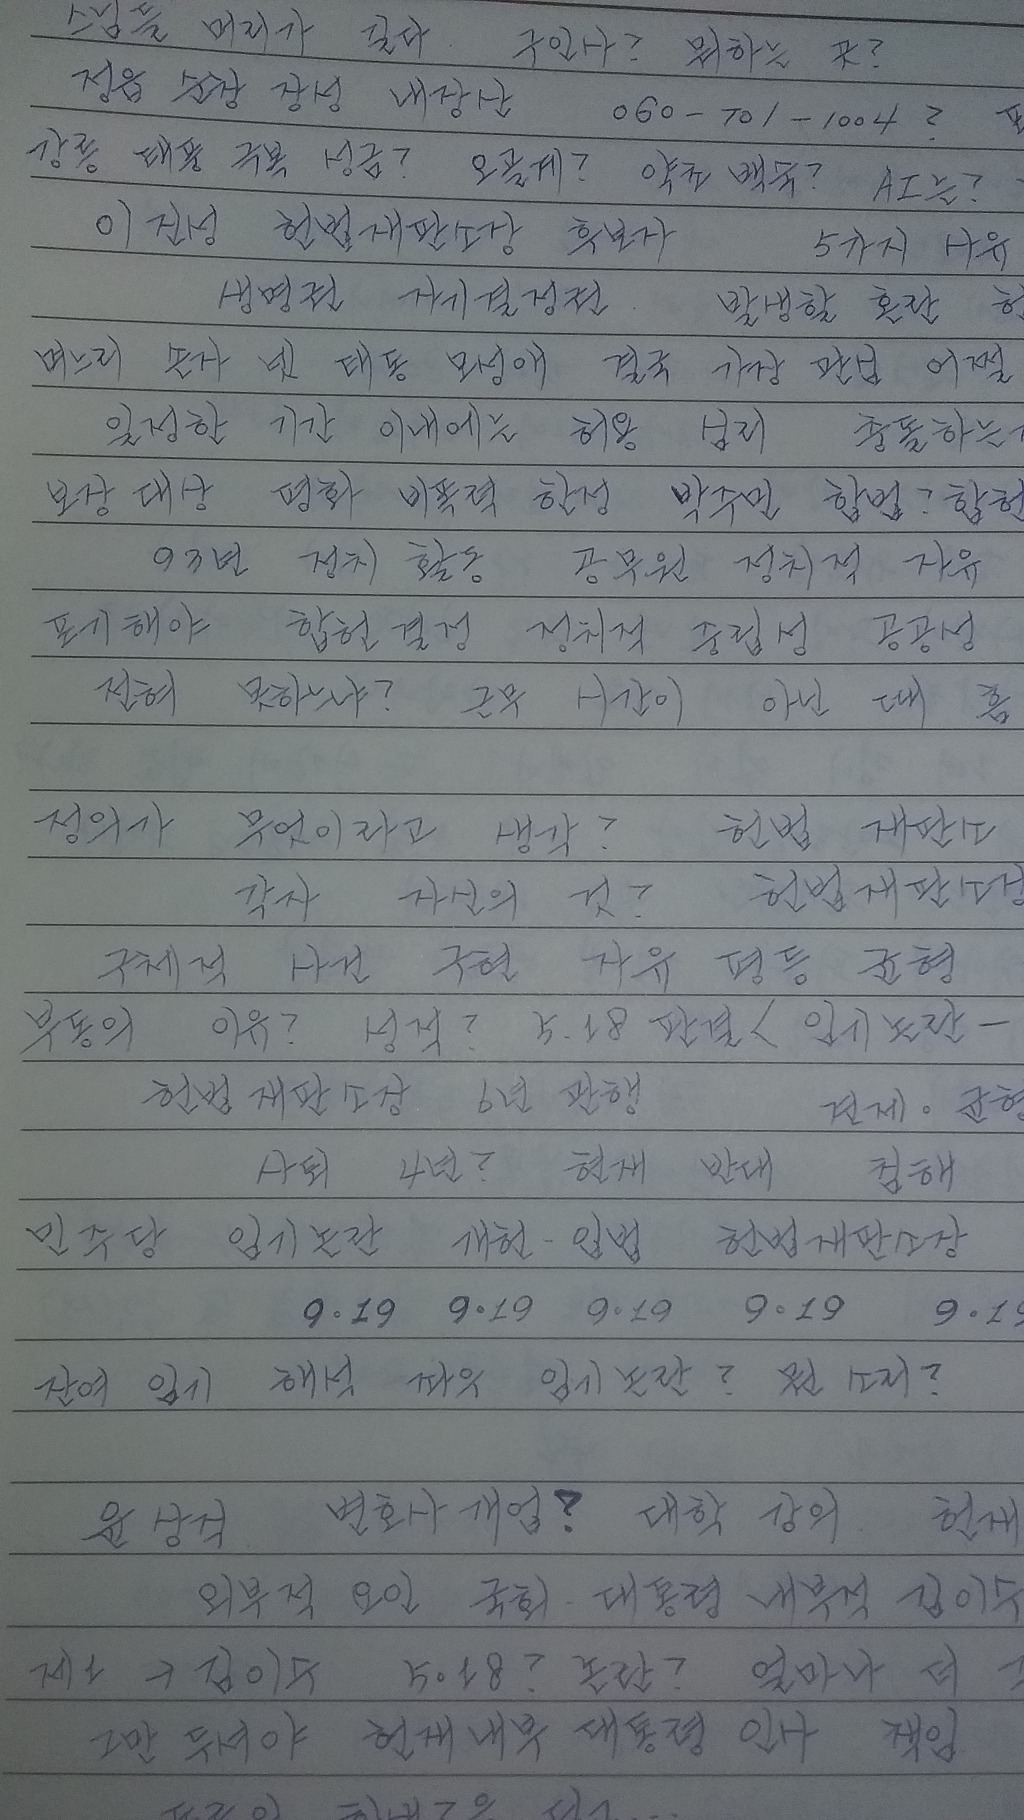 스님들 머리가 길다 구인사? 뭐하는 곳?
정읍 순창 장성 내장산 060-701-1004?
강릉 태풍 극복 성금? 오골계? 약초 백숙? AI는?
이진성 헌법재판소장 후보자 5가지 사유
생명권 자기결정권 발생할 혼란
며느리 손자 넷 태동 모성애 결국 가장 판단 어쩔
일정한 기간 이내에는 허용 심리 충돌하는
보상 대상 평화 비폭력 한정 박주민 합법? 합헌
93년 정치 활동 공무원 정치적 자유
표시해야 합헌 결정 정치적 중립성 공공성
전혀 못하느냐? 근무 시간이 아닌 때
정의가 무엇이라고 생각? 헌법 재판소
각자 자신의 것? 헌법재판소장
구체적 사건 구현 자유 평등 균형
부동의 이유? 성적? 5.18 판결< 임기논란-
헌법재판소장 6년 관행 견제·균형
사퇴 4년? 현재 반대 침해
민주당 임기논란 개헌-입법 헌법재판소장
6.19 6.19 6.19 6.19 6.19
잔여 임기 해석 좌우 임기논란? 뭔 소리?
윤상직 변호사개업? 대학 강의 헌재
외부적 요인 국회-대통령 내부적 김이수
제1 김이수 5.18? 논란? 얼마나 더
그만 두어야 헌재내부 대통령 인사 책임